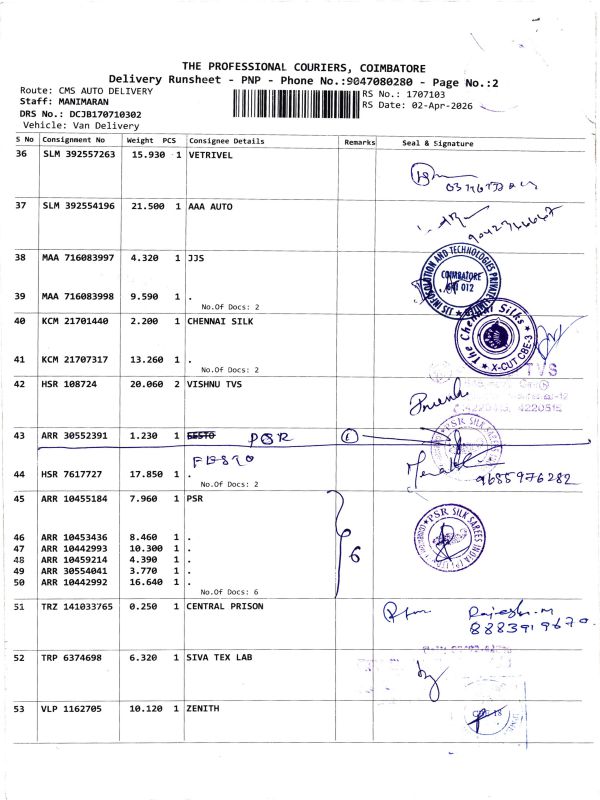 THE PROFESSIONAL COURIERS, COIMBATORE
Delivery Runsheet - PNP - Phone No.:9047080280 - Page No.:2
Route: CMS AUTO DELIVERY
Staff: MANIMARAN
DRS No.: DCJB170710302
Vehicle: Van Delivery
RS No.: 1707103
RS Date: 02-Apr-2026
S No Consignment No Weight PCS Consignee Details Remarks Seal & Signature
36 SLM 392557263 15.930 1 VETRIVEL
37 SLM 392554196 21.500 1 AAA AUTO
38 MAA 716083997 4.320 1 JJS
COIMBATORE
39 MAA 716083998 9.590 1 .
No.Of Docs: 2
40 KCM 21701440 2.200 1 CHENNAI SILK
The Chennai Silks
X-CUT CBE-3
41 KCM 21707317 13.260 1 .
No.Of Docs: 2
42 HSR 108724 20.060 2 VISHNU TVS
TVS
43 ARR 30552391 1.230 1 FESTO PSR 1
FESTO
44 HSR 7617727 17.850 1 .
No.Of Docs: 2
9655976282
45 ARR 10455184 7.960 1 PSR
PSR SILK SAREES INDIA (P) LTD
46 ARR 10453436 8.460 1 .
47 ARR 10442993 10.300 1 .
48 ARR 10459214 4.390 1 .
49 ARR 30554041 3.770 1 .
50 ARR 10442992 16.640 1 .
No.Of Docs: 6
6
51 TRZ 141033765 0.250 1 CENTRAL PRISON
Rajesh.M
8883919670
52 TRP 6374698 6.320 1 SIVA TEX LAB
53 VLP 1162705 10.120 1 ZENITH